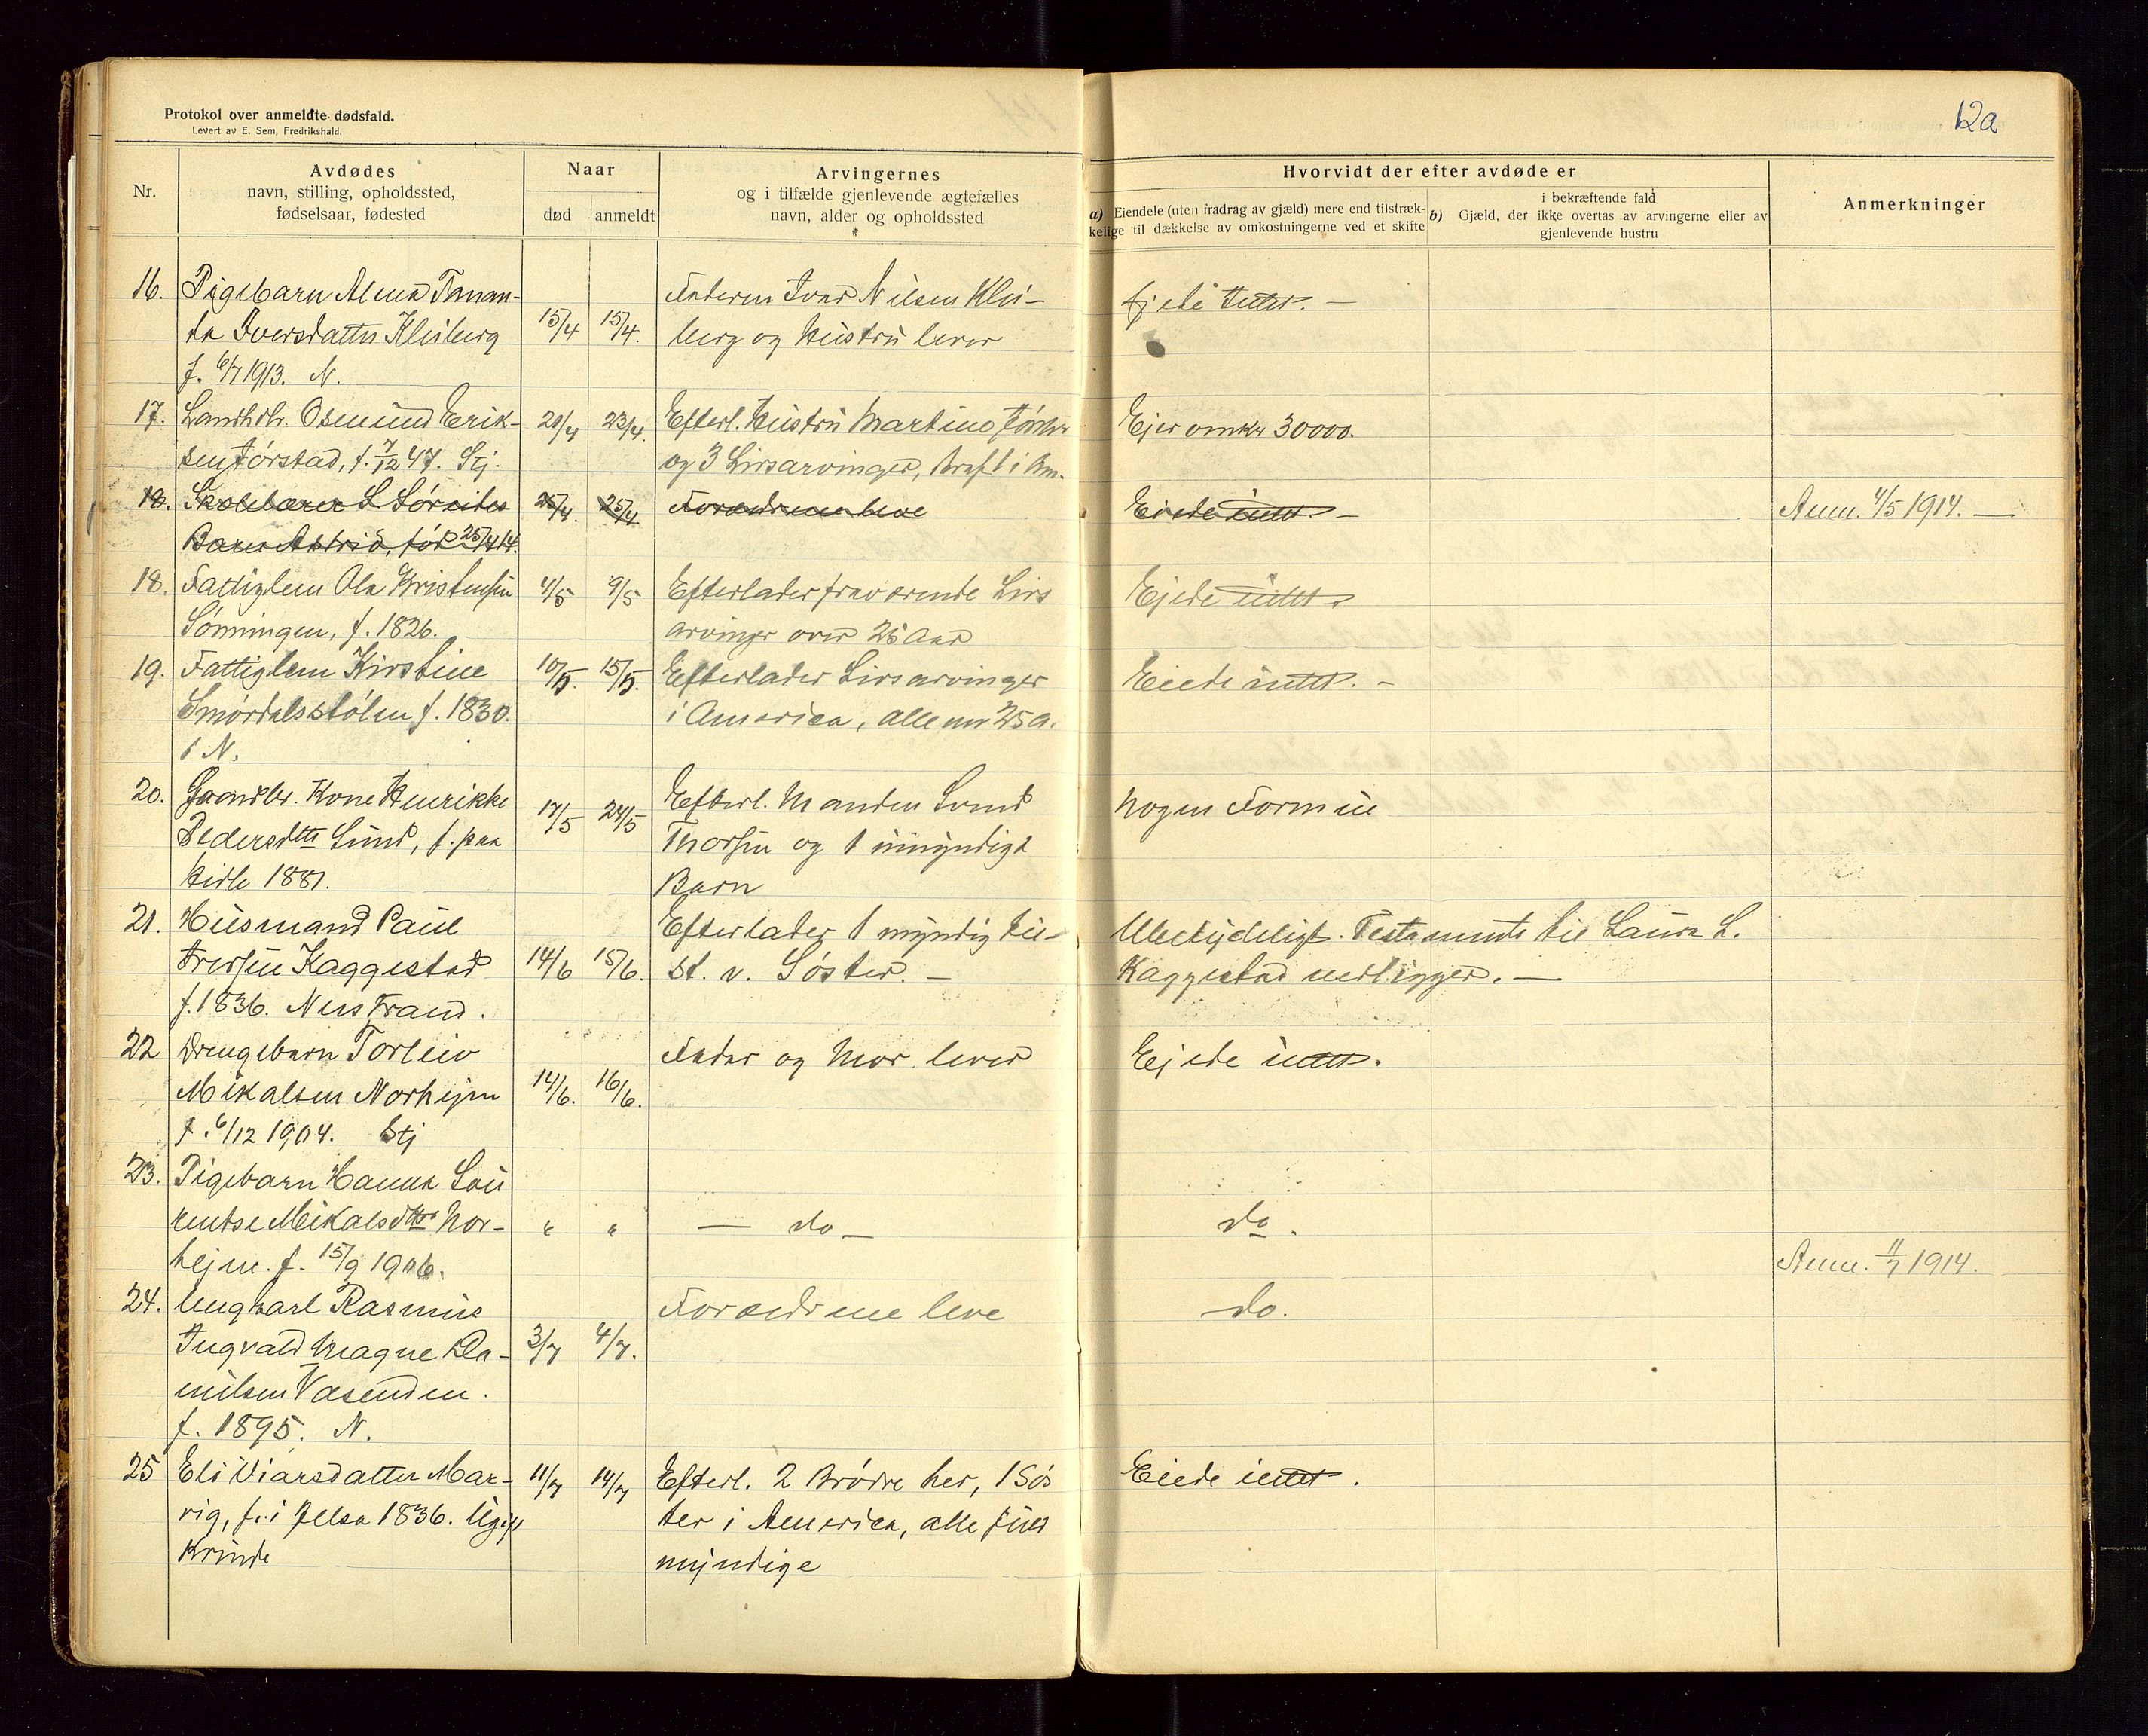 Protokol over anmeldte dødsfald.
Levert av E. Sem, Fredrikshald.
12a
Nr.
Avdødes
navn, stilling, opholdssted,
fødselsaar, fødested
Naar
død
anmeldt
Arvingernes
og i tilfælde gjenlevende ægtefælles
navn, alder og opholdssted
Hvorvidt der efter avdøde er
a) Eiendele (uten fradrag av gjæld) mere end tilstræk-
kelige til dækkelse av omkostningerne ved et skifte
i bekræftende fald
b) Gjæld, der ikke overtas av arvingerne eller av
gjenlevende hustru
Anmerkninger
16. Pigebarn Alma Taman-
da Iversdatter Kleiberg
f. 6/7 1913. N.
15/4 15/4.
Faderen Ivar Nilsen Klei-
berg og Hustru lever
Ejede Intet. —
17. Landhdlr. Osmund Erik-
sen Jørstad, f. 7/12 47. Stj.
20/4 23/4.
Efterl. Hustru Martine
og 3 Livsarvinger, i Am.
Ejer omkr 30000.
18. Skolelærer L Søreides
Barn Astrid, fød 25/4 14.
25/4. 25/4
Forældrene leve
Eiede intet. —
Anm. 4/5 1914. —
18. Fattiglem Ola Kristensen
Sønningen, f. 1826.
4/5 9/5
Efterlader fraværende Livs
arvinger over 25 Aar
Ejede intet.
19. Fattiglem Kirstine
Smørdalsstølen f. 1830.
i N.
10/5. 15/5.
Efterlader Livsarvinger
i America, alle over 25 a.
Eiede intet. -
20. Gaardbr. Kone Henrikke
Pedersdtr Lund, f. paa
Hidle 1881.
17/5 24/5
Efterl. Manden Svend
Thorsen og 1 umyndigt
Barn
Nogen Formue
21. Husmand Paul
Iversen Kaggestad
f. 1836. Nerstrand.
14/6 15/6.
Efterlader 1 myndig
st. v. Søster. —
Ubetydeligt. Testamente til Laura L.
Kaggestad vedligger. —
22 Drengebarn Torleiv
Mikalsen Norhejm
f. 6/12 1904. Stj
14/6. 16/6.
Fader og Mor lever
Ejede intet.
23. Pigebarn Hanna Lau
rentse Mikalsdtr Nor-
hejm. f. 15/9 1906.
" "
— do —
do.
Anm. 11/7 1914.
24. Ungkarl Rasmus
Ingvald Magne Da-
nielsen Vasenden.
f. 1895. N.
3/7 4/7.
Forældrene leve
do.
25 Eli Viarsdatter Mar-
vig, f. i Jelsa 1836. Ugift
Kvinde
11/7 14/7
Efterl. 2 Brødre her, 1 Søs
ter i America, alle fuld
myndige
Eiede intet.